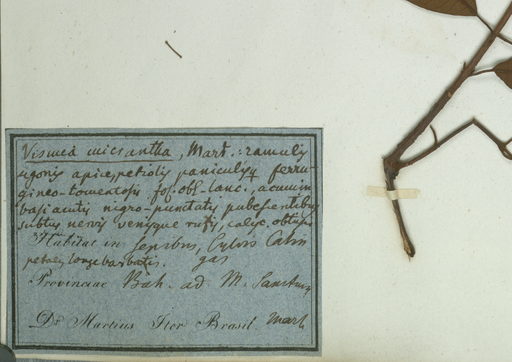 Vismea micrantha, Mart.: ramulis
apice, petiolis paniculisq ferru
gineo-tomentosis fol. obl. lanc., acumin
basi acutis nigro-punctatis pubescentibus
subtus nervis venisque rufis, calyc. obtusis
Habitat in sepibus, Sylvis Catin
petalis longe barbatis. gas
Provinciae Bah. ad. M. Sanctum
Dr Martius Iter Brasil. Mart